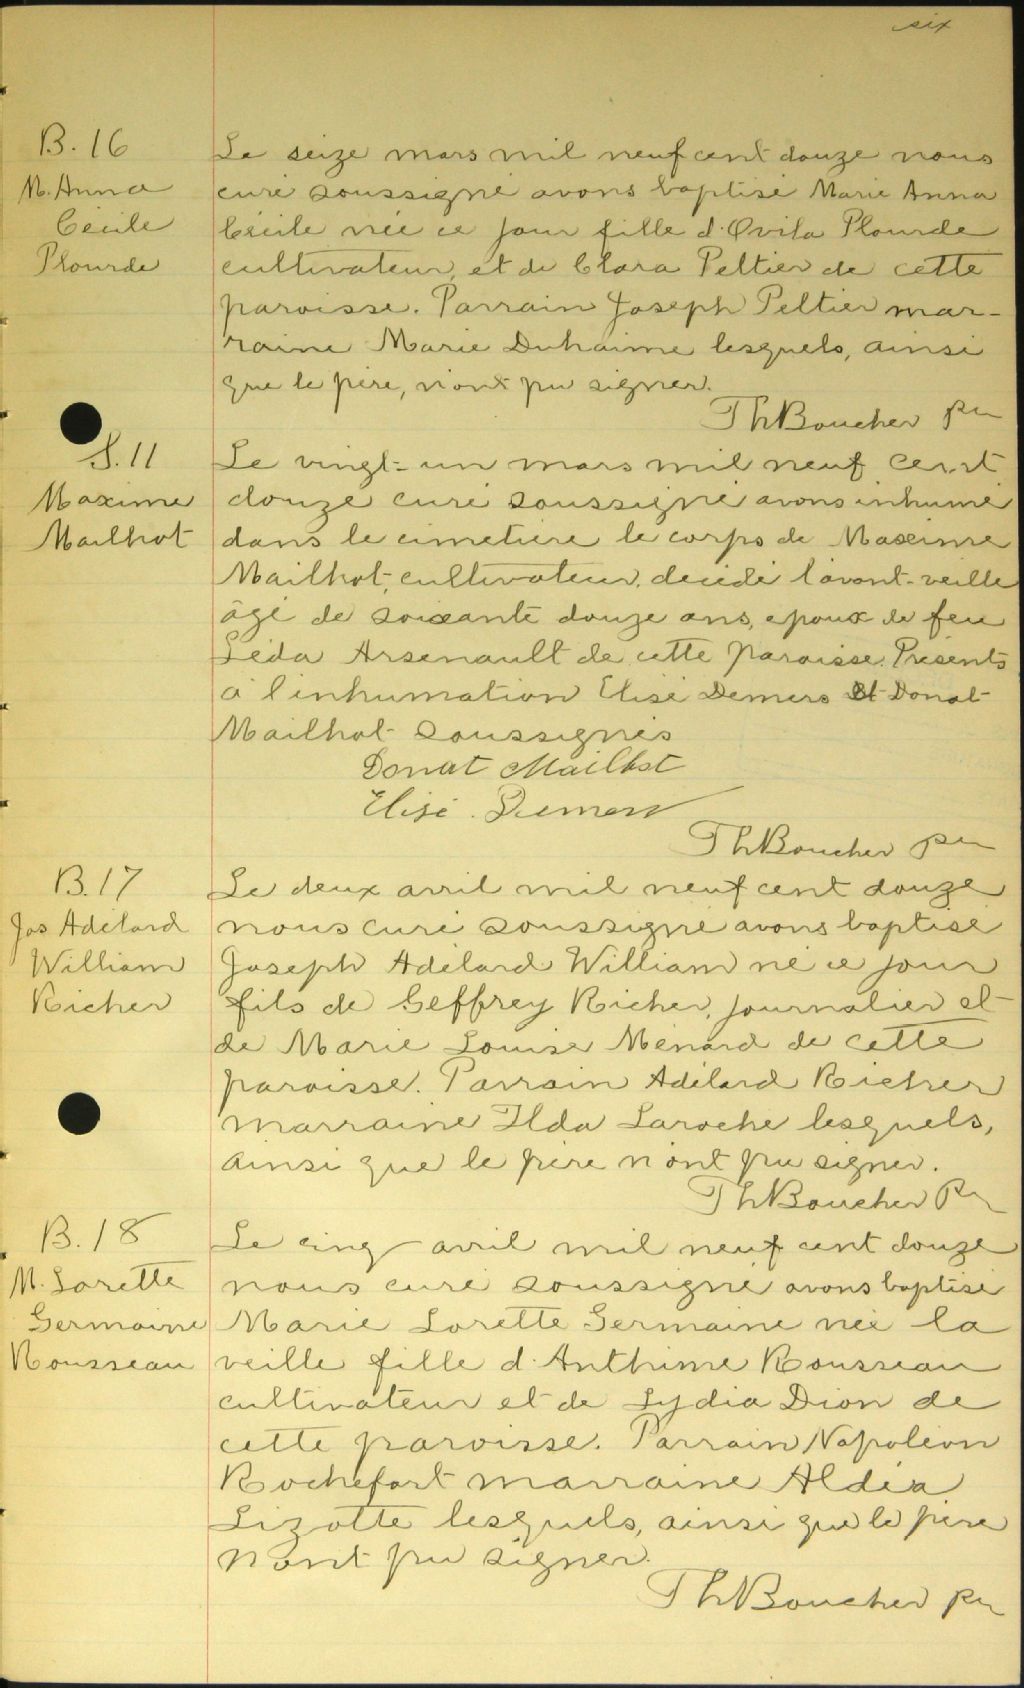 six
B. 16
M. Anna
Cécile
Plourde
Le seize mars mil neuf cent douze nous
curé soussigné avons baptisé Marie Anna
Cécile née ce jour fille d'Ovila Plourde
cultivateur, et de Clara Peltier de cette
paroisse. Parrain Joseph Peltier mar-
raine Marie Duhaime lesquels, ainsi
que le père, n'ont pu signer.
Th Boucher ptre
S. 11
Maxime
Mailhot
Le vingt-un mars mil neuf cent
douze curé soussigné avons inhumé
dans le cimetière le corps de Maxime
Mailhot, cultivateur, décédé l'avant-veille
âgé de soixante douze ans, époux de feu
Léda Arsenault de cette paroisse. Présents
à l'inhumation Elisé Demers et Donat
Mailhot soussignés
Donat Mailhot
Elisé Demers
Th Boucher ptre
B. 17
Jos Adélard
William
Richer
Le deux avril mil neuf cent douze
nous curé soussigné avons baptisé
Joseph Adélard William né ce jour
fils de Geffrey Richer, journalier et
de Marie Louise Ménard de cette
paroisse. Parrain Adélard Richer
marraine Ilda Laroche lesquels,
ainsi que le père n'ont pu signer.
Th Boucher ptre
B. 18
M. Lorette
Germaine
Rousseau
Le cinq avril mil neuf cent douze
nous curé soussigné avons baptisé
Marie Lorette Germaine née la
veille fille d'Anthime Rousseau
cultivateur et de Lydia Dion de
cette paroisse. Parrain Napoléon
Rochefort marraine Aldéa
Lizotte lesquels, ainsi que le père
n'ont pu signer.
Th Boucher ptre